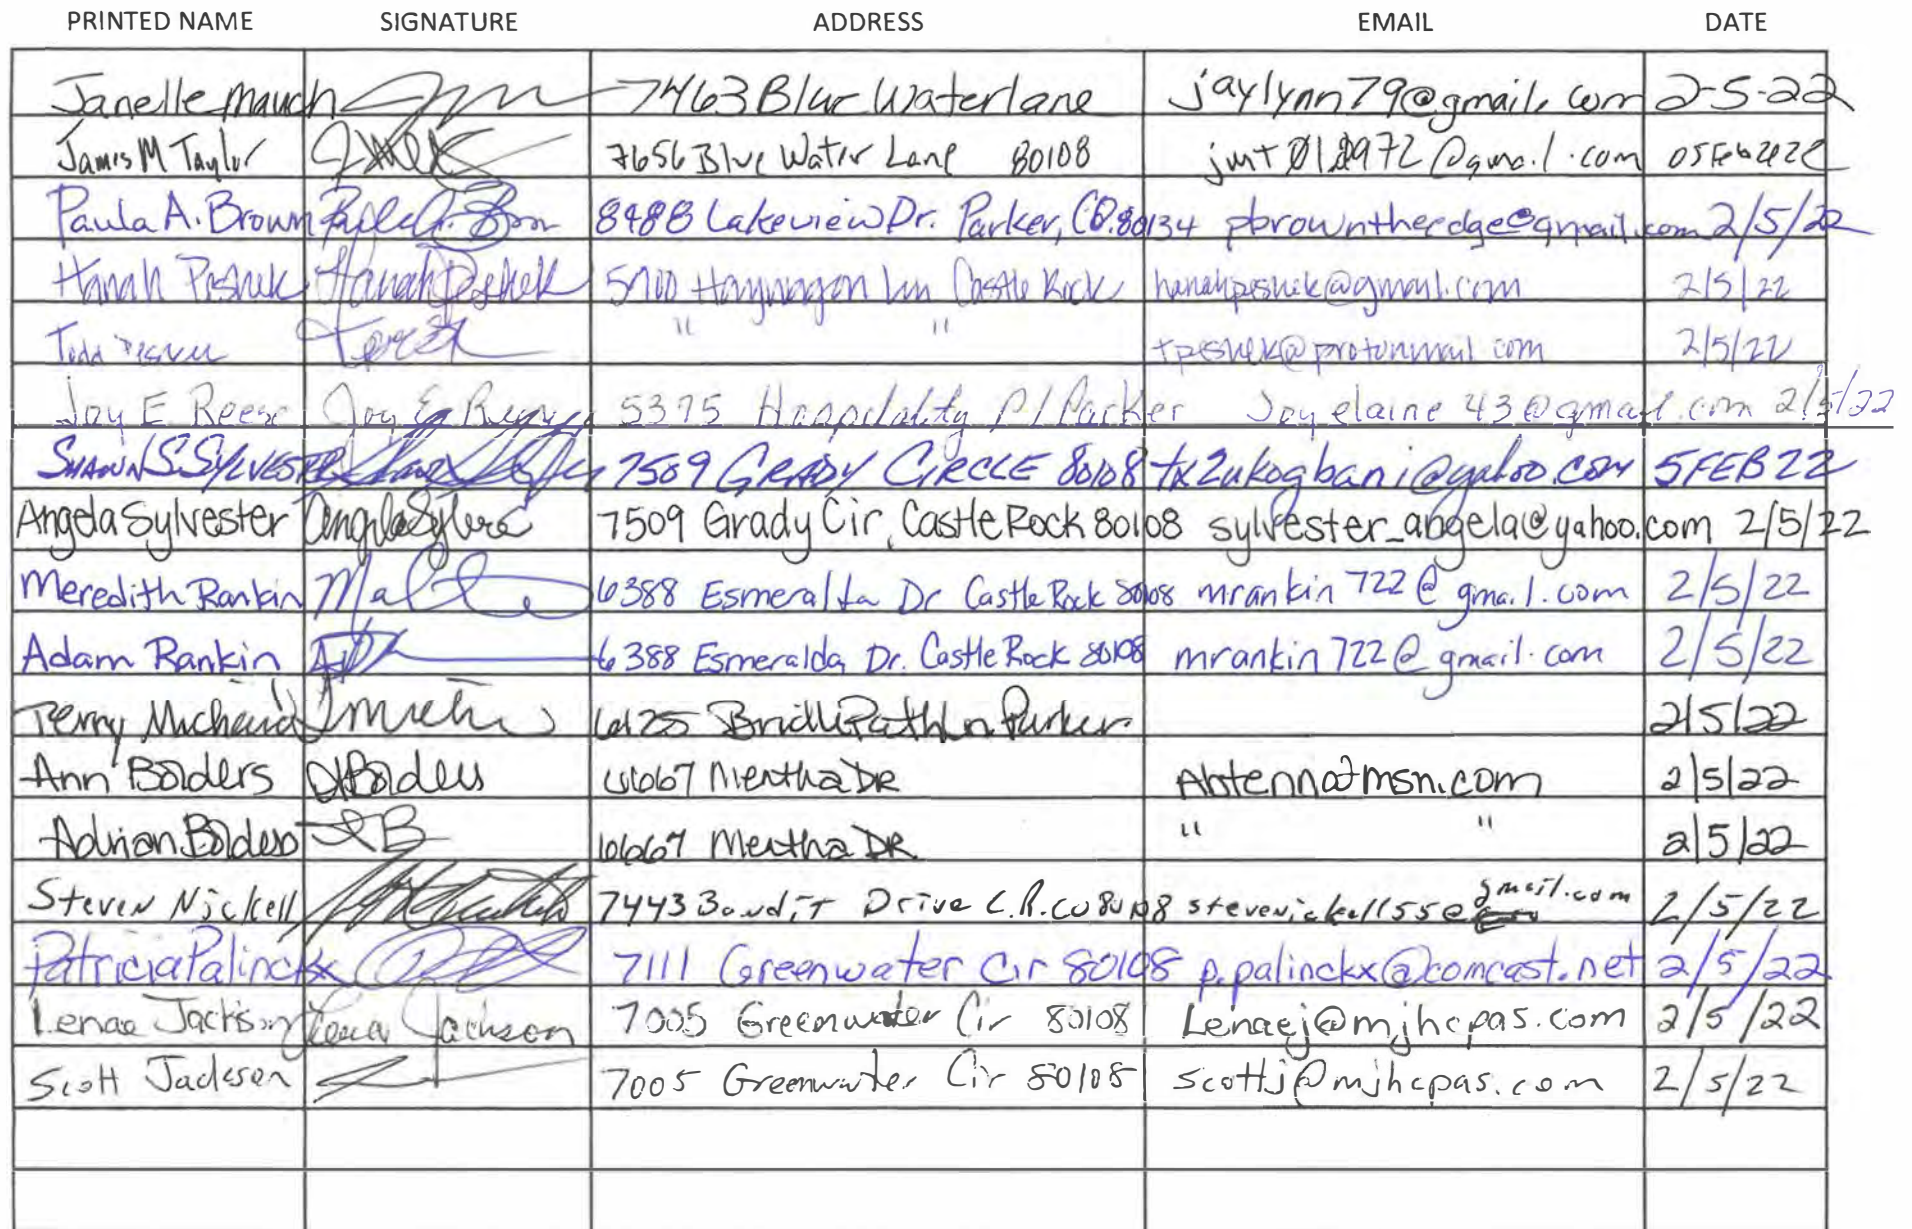 PRINTED NAME SIGNATURE ADDRESS EMAIL DATE
Janelle Mauch 7463 Blue Water lane jaylynn79@gmail.com 2-5-22
James M Taylor 7656 Blue Water Lane 80108 @gmail.com 05Feb2022
Paula A. Brown Paula A. Brown 8488 Lakeview Dr. Parker, CO. 80134 pbrowntheedge@gmail.com 2/5/22
Hanah Peshek Hanah Peshek Haywagon Ln Castle Rock hanahpeshek@gmail.com 2/5/22
Todd Peshek " " tpeshek@protonmail.com 2/5/22
Joy E Reese Joy E Reese 5375 Hospitality Pl Parker Joyelaine43@gmail.com 2/5/22
SHAWN S. SYLVESTER 7509 GRADY CIRCLE 80108 tx2ukogbani@yahoo.com 5FEB22
Angela Sylvester Angela Sylvester 7509 Grady Cir, Castle Rock 80108 sylvester_angela@yahoo.com 2/5/22
Meredith Rankin 6388 Esmeralda Dr Castle Rock 80108 mrankin722@gmail.com 2/5/22
Adam Rankin 6388 Esmeralda Dr. Castle Rock 80108 mrankin722@gmail.com 2/5/22
Terry Michaud 6125 Bridle Path Ln Parker 2/5/22
Ann Bolders ABolders 6667 Mentha DR Abtenn@msn.com 2/5/22
Adrian Bolders AB 6667 Mentha DR " " 2/5/22
Steven Nickell 7443 Bandit Drive C.R. CO 80108 stevenickell55@gmail.com 2/5/22
Patricia Palinckx 7111 Greenwater Cir 80108 p.palinckx@comcast.net 2/5/22
Lenae Jackson Lenae Jackson 7005 Greenwater Cir 80108 Lenaej@mjhcpas.com 2/5/22
Scott Jackson 7005 Greenwater Cir 80108 scottj@mjhcpas.com 2/5/22